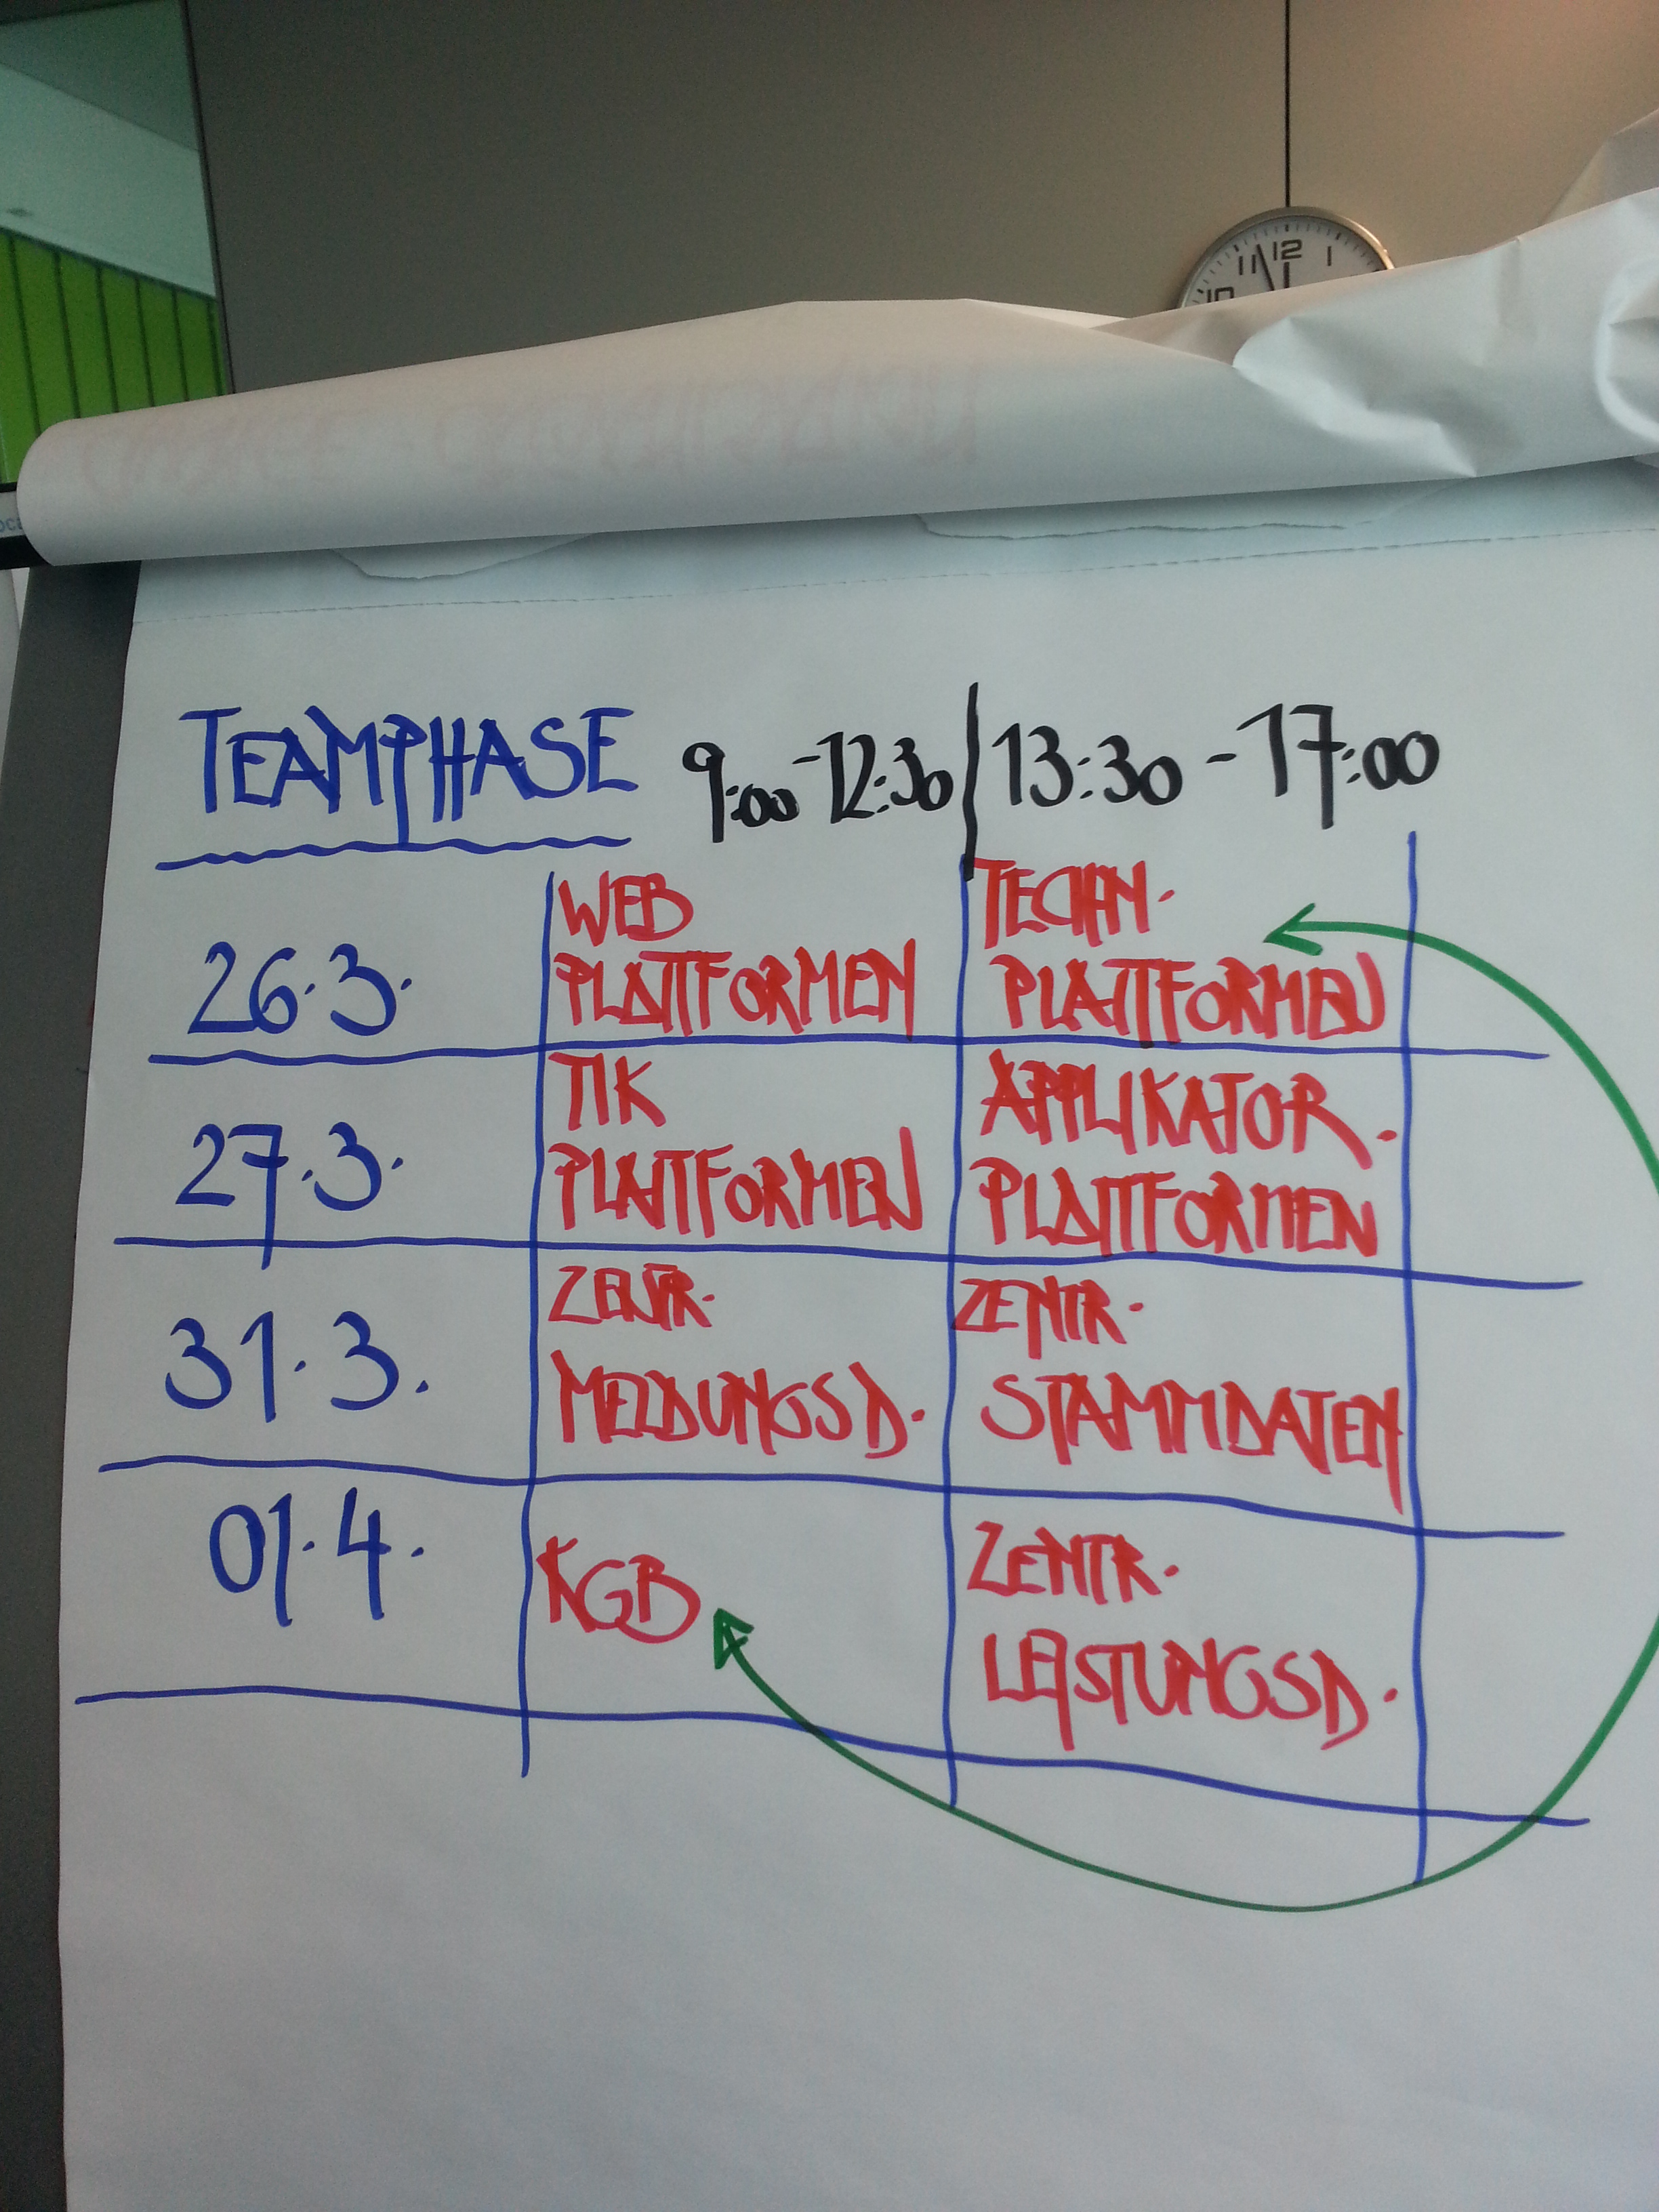 12
11
1
10
TEAMPHASE 9:00-12:30 | 13:30-17:00
26.3.
WEB
PLATTFORMEN
TECHN.
PLATTFORMEN
27.3.
TIK
PLATTFORMEN
APPLIKATOR.
PLATTFORMEN
31.3.
ZENTR.
MELDUNGSD.
ZENTR.
STAMMDATEN
01.4.
KGB
ZENTR.
LEISTUNGSD.